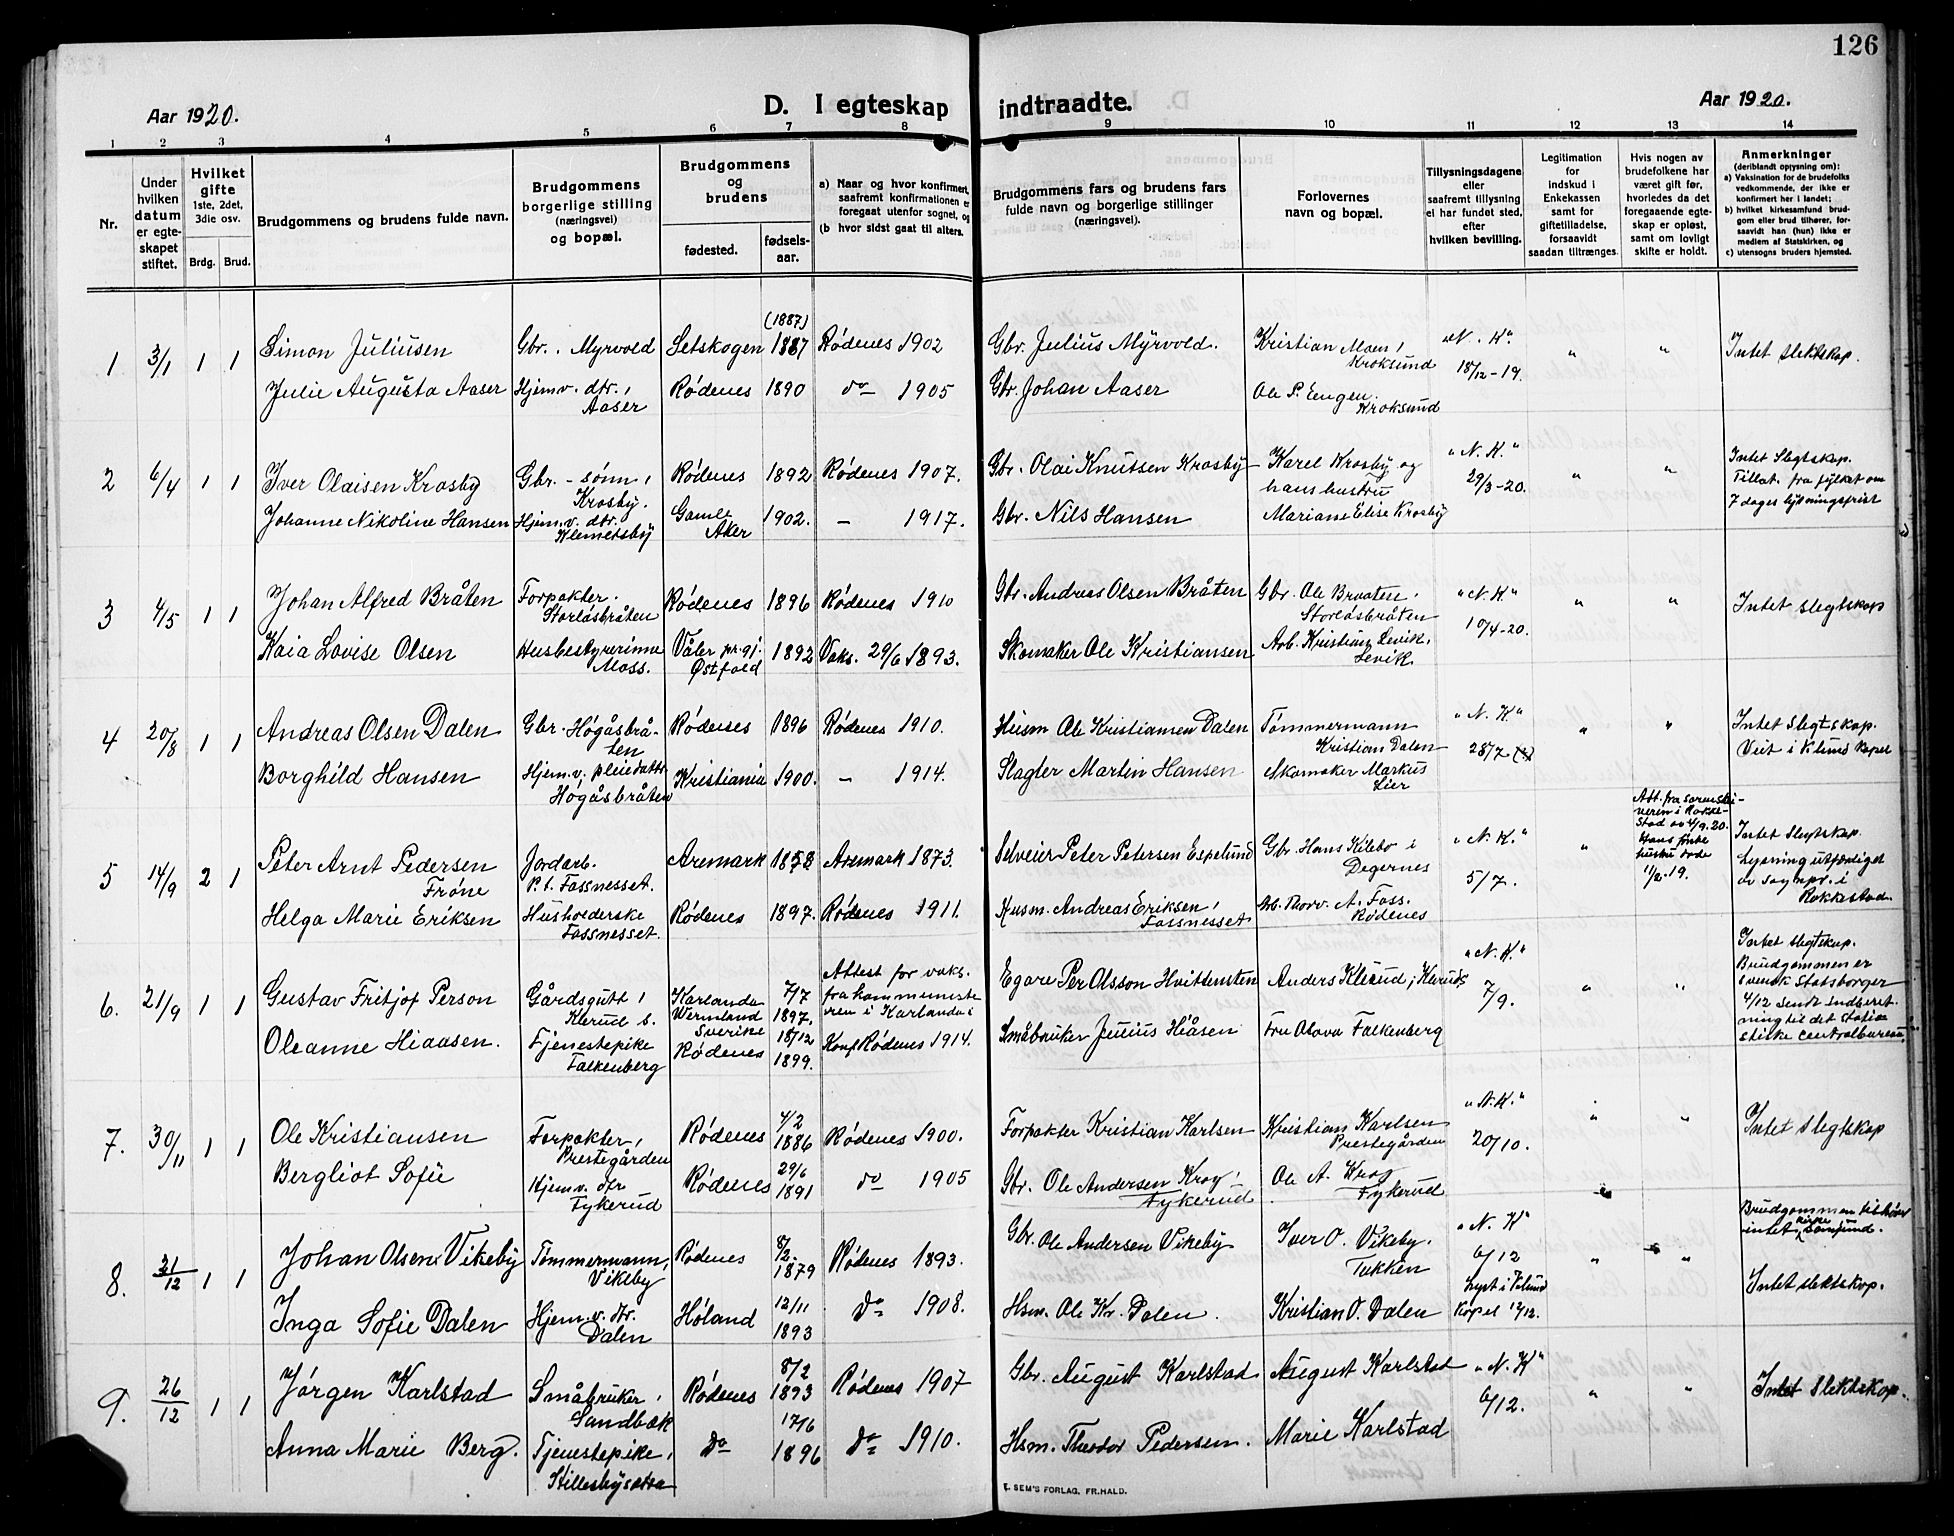 126
Aar 1920.
D. I egteskap indtraadte.
Aar 1920.
1 2 3 4 5 6 7 8 9 10 11 12 13 14
Nr.
Under hvilken datum er egteskapet stiftet.
Hvilket gifte 1ste, 2det, 3die osv.
Brdg. Brud.
Brudgommens og brudens fulde navn.
Brudgommens borgerlige stilling (næringsvei) og bopæl.
Brudgommens og brudens
fødested. fødselsaar.
a) Naar og hvor konfirmert, saafremt konfirmationen er foregaat utenfor sognet, og
(b hvor sidst gaat til alters.
Brudgommens fars og brudens fars fulde navn og borgerlige stillinger (næringsvei).
Forlovernes navn og bopæl.
Tillysningsdagene eller saafremt tillysning ei har fundet sted, efter hvilken bevilling.
Legitimation for indskud i Enkekassen samt for giftetilladelse, forsaavidt saadan tiltrænges.
Hvis nogen av brudefolkene har været gift før, hvorledes da det foregaaende egteskap er opløst, samt om lovligt skifte er holdt.
Anmerkninger (deriblandt oppysning om):
a) Vaksination for de brudefolks vedkommende, der ikke er konfirmert her i landet;
b) hvilket kirkesamfund brudgom eller brud tilhører, forsaavidt han (hun) ikke er medlem af Statskirken, og
c) utensogns bruders hjemsted.
1 3/1 1 1 Simon Juliusen Gbr., Myrvold Setskogen (1887) 1887 Rødenes 1902 Gbr. Julius Myrvold. Kristian Moen, Kroksund "N. K" 18/12-19. " " Intet slektskap.
Julie Augusta Aaser Hjemv. dtr., Aaser Rødenes 1890 do 1905 Gbr. Johan Aaser Ole P. Engen. Kroksund
2 6/4 1 1 Iver Olaisen Krosby Gbr.-sønn, Krosby. Rødenes 1892 Rødenes 1907. Gbr. Olai Knutsen Krosby Karel Krosby og hans hustru "N. K." 29/3-20. " " Intet Slegtskap. Tillat. fra fylket om 7 dages lysningsfrist
Johanne Nikoline Hansen Hjemv. dtr. Klemetsby Gamle Aker 1902. - 1917. Gbr. Nils Hansen Mariane Elise Krosby
3 4/5 1 1 Johan Alfred Bråten Forpakter. Storlåsbråten Rødenes 1896 Rødenes 1910 Gbr. Andreas Olsen Bråten Gbr. Ole Braaten, Storlåsbråten "N. K" 10/4-20. " " Intet slegtskap
Kaia Lovise Olsen Husbestyrerinne Moss. Våler pr.gj. Østfold 1892 Vaks. 29/6 1893. Skomaker Ole Kristiansen Arb. Kristian Levik, Levik.
4 20/8 1 1 Andreas Olsen Dalen Gbr. Högåsbråten Rødenes 1896 Rødenes 1910. Husm Ole Kristiansen Dalen Tømmermann Kristian Dalen "N. K" 28/7 " " Intet Slegtskap. Viet i Klund Kapel
Borghild Hansen Hjemv. pleiedattr Högåsbråten Kristiania 1900. - 1914. Slagter Martin Hansen Skomaker Markus Lier
5 14/9 2 1 Peter Arnt Pedersen Frøne Jordarb. p.t. Fossnesset. Aremark 1858 Aremark 1873. Selveier Peter Petersen Espelund Gbr. Hans Kilebo i Degernes "N. K." 5/7. " Att. fra sorenskriveren i Rakkestad av 4/9.20. Hans første hustru døde 11/2.19. Intet Slegtskap. Lysning utfærdiget av sognpr. i Rakkestad.
Helga Marie Eriksen Husholderske Fossnesset. Rødenes 1897. Rødenes 1911. Husm. Andreas Eriksen, Fossnesset Arb. Thorv. A. Foss. Rødenes
6. 21/9 1 1 Gustav Fritjof Person Gårdsgutt, Klerud s. Karlanda Wermland Sverike 7/7 1897. Attest for vaks. fra kommeniste ren i Karlanda Egare Per Olsson Hvittensten Anders Klerud, Klerud, "N. K" 7/9. " " Intet slegtskap. Brudgommen er svensk Statsborger 4/12 sendt indberetning til det statistiske centralbureau.
Oleanne Hiaasen. Tjenestepike Falkenberg Rødenes 18/12 1899. Konf Rødenes 1914. Småbruker Julius Hiåsen Fru Olava Falkenberg
7. 30/11 1 1 Ole Kristiansen Forpakter, Prestegården Rødenes 4/2 1886 Rødenes 1900. Forpakter Kristian Karlsen Kristian Karlsen Prestegården "N. K." 20/10. " " Intet Slegtskap
Bergliot Sofie Hjemv. dtr Tykerud Rødenes 29/6 1891 do 1905 Gbr. Ole Andersen Krog, Tykerud Ole A. Krog Tykerud
8. 21/12 1 1 Johan Olsen Vikeby Tømmermann, Vikeby Rødenes 8/2. 1879 Rødenes 1893. Gbr. Ole Andersen Vikeby Iver O. Vikeby. Tukken "N. K" 6/12 Lyst i Klund Kapel 12/12. " " Brudgommen tilhører intet kirke samfund.
Inga Sofie Dalen Hjemv. dtr. Dalen Høland 12/11 1893 do 1908. Hsm. Ole Kr. Dalen. Kristian O. Dalen Intet slektskap.
9. 26/12 1 1 Jørgen Karlstad Småbruker, Sandbæk Rødenes 8/2 1893 Rødenes 1907 Gbr. August Karlstad August Karlstad "N. K" 6/12. " " Intet Slektskap.
Anna Marie Berg. Tjenestepike, Killesbysætra do 17/6 1896 do 1910. Hsm. Theodor Pedersen. Marie Karlstad
E. SEM'S FORLAG, FR.HALD.